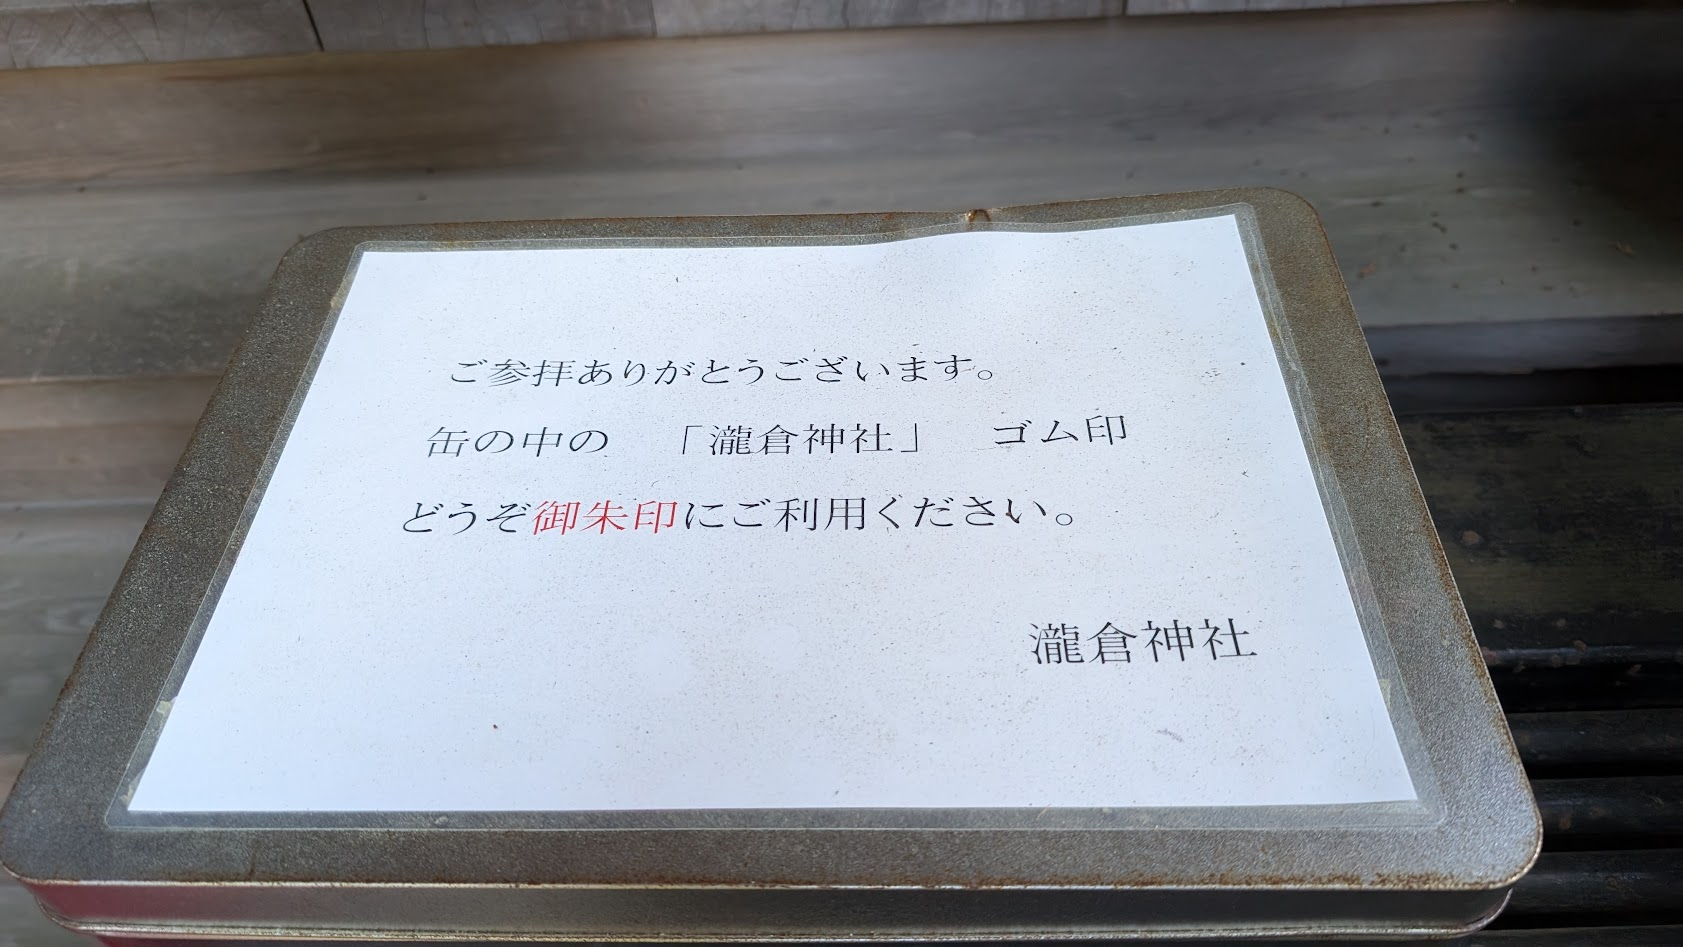 ご参拝ありがとうございます。
缶の中の　「瀧倉神社」　ゴム印
どうぞ御朱印にご利用ください。
瀧倉神社